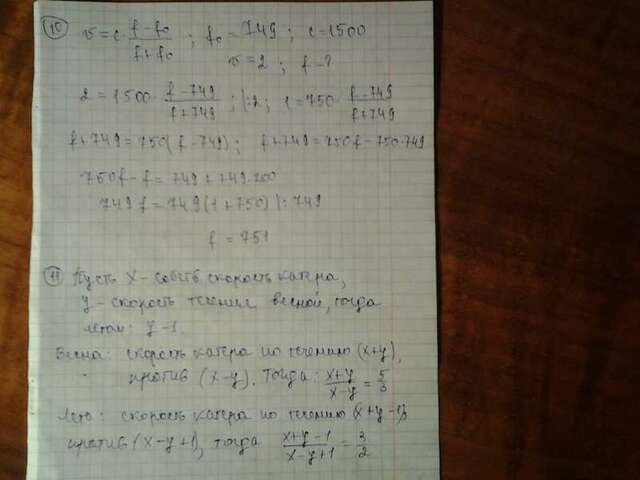 10 v=c·(f-f₀)/(f+f₀) ; f₀=749 ; c=1500
v=2 ; f-?
2=1500·(f-749)/(f+749) ; |:2; 1=750·(f-749)/(f+749)
f+749=750(f-749); f+749=750f-750·749
750f-f=749+749·750
749f=749(1+750) |:749
f=751
11 Пусть x-собств скорость катера,
y-скорость течения весной, тогда
летом: y-1.
Весна: скорость катера по течению (x+y),
против (x-y). Тогда: (x+y)/(x-y)=5/3
Лето: скорость катера по течению (x+y-1),
против (x-y+1), тогда (x+y-1)/(x-y+1)=3/2